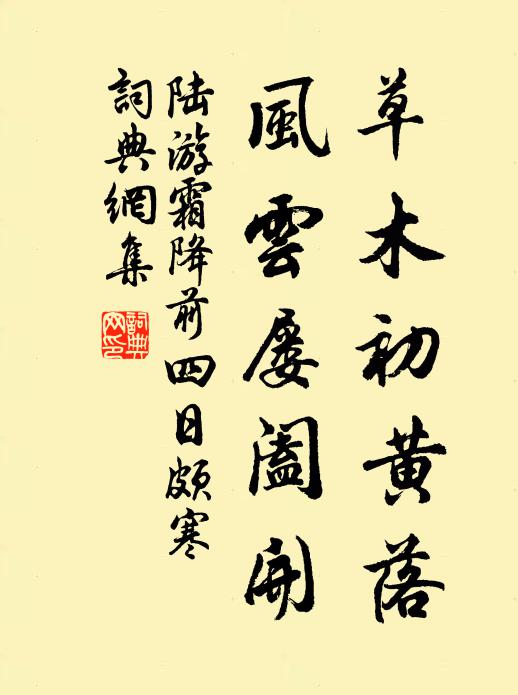 草木初黄落
風雲屡闔開
陆游霜降前四日頗寒
詞典網集
詞典网印